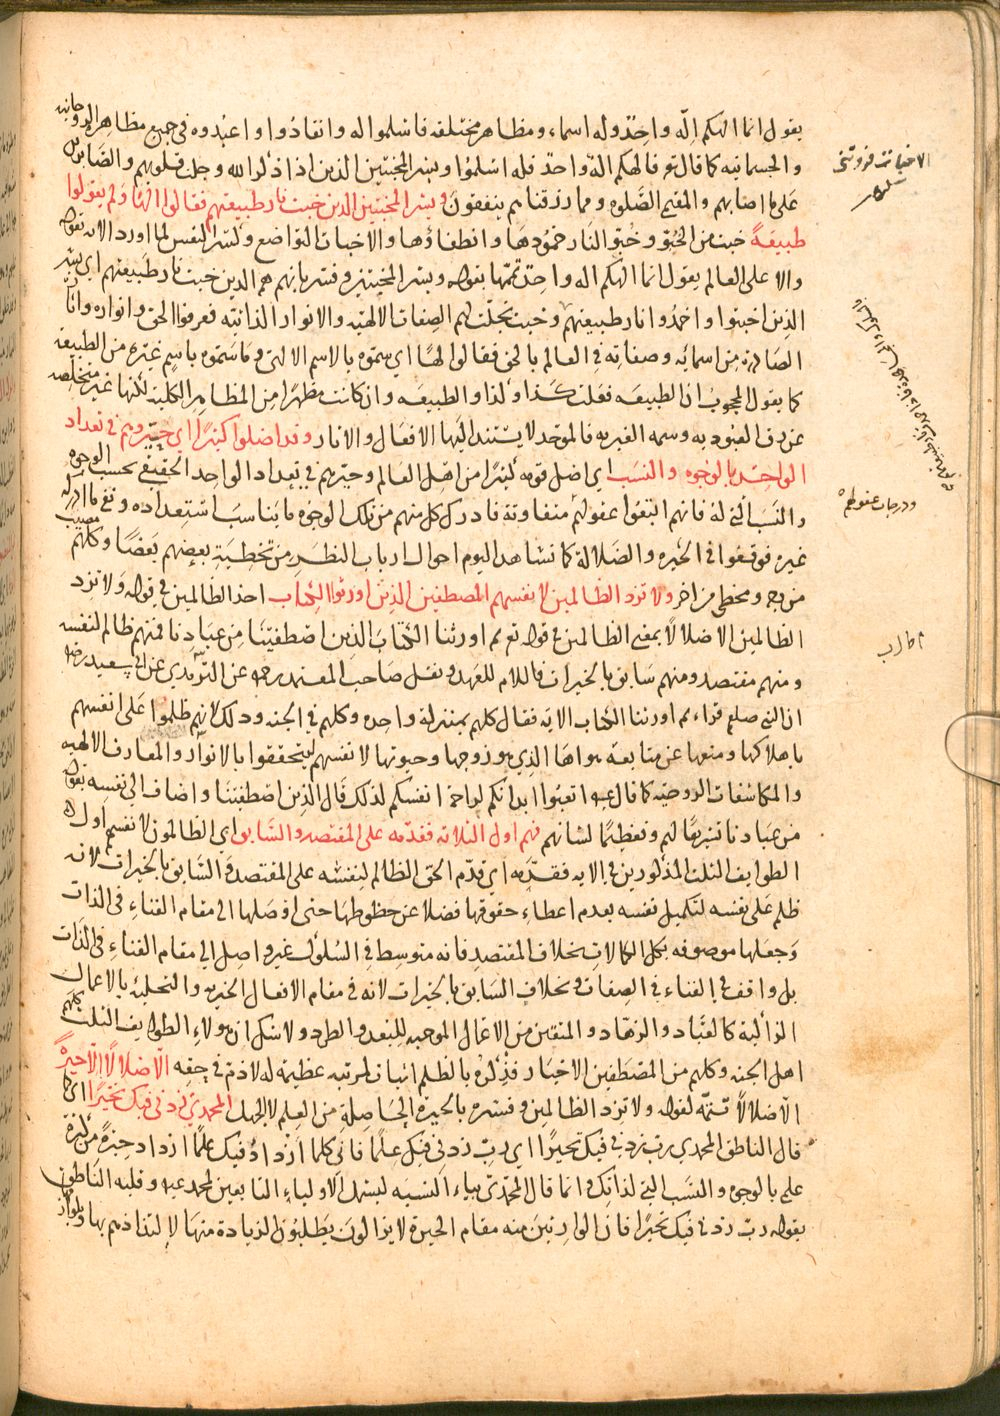 يقول انما الهكم اله واحد وله اسماء ومظاهر مختلفه فاسلموا له وانقادوا واعبدوه فى جميع مظاهره الروحانيه
والجسمانيه كما قال تع فالهكم اله واحد فله اسلموا وبشر المخبتين الذين اذا ذكر الله وجلت قلوبهم والصابرين
على ما اصابهم والمقيمى الصلوه ومما رزقناهم ينفقون وبشر المخبتين الذين خبت نار طبيعتهم فقالوا الها ولم يقولوا
طبيعة خبت من الخبو وخبو النار خمودها وانطفاؤها والاخبات التواضع وكسر النفس لما اورد الايه بقوله
والا على العالم يقول انما الهكم اله واحد تممها بقوله وبشر المخبتين وفسر بانهم هم الذين خبت نار طبيعتهم اى بشر
الذين اخبتوا واخمدوا نار طبيعتهم وخبت بتجلت لهم الصفات الالهيه والانوار الذاتيه فعرفوا الحق وانواره واثار
الصادرة من اسمائه وصفاته فى العالم بالحق فقالوا الها اى سموه بالاسم الالهى وما سموه باسم غيره من الطبيعه
كما يقول المحجوب ان الطبيعه فعلت كذا وكذا والطبيعه وان كانت مظهرا من المظاهر الكليه لكنها غير متخلصه
عن رق العبوديه وسمه الغيريه فالموحد لا يستند اليها الافعال والاثار وقد اضلوا كثيرا اى حيروهم فى تعداد
الواحد بالوجوه والنسب اى اضل قومه كثيرا من اهل العالم وحيرهم فى تعداد الواحد الحقيقى بحسب الوجوه
والنسب التى له فانهم اتبعوا عقولهم متفاوتة فادرك كل منهم من تلك الوجوه ما يناسب استعداده ونفى ما ادركه
غيره فوقعوا فى الحيره والضلالة كما نشاهد اليوم احوال ارباب النظر من تخطية بعضهم بعضا وكلهم مصيب
من وجه ومخطى من اخر ولا تزد الظالمين لانفسهم المصطفين الذين اورثوا الكتاب اخذ الظالمين فى قوله ولا تزد
الظالمين الا ضلالا بمعنى الظالمين فى قوله تع ثم اورثنا الكتاب الذين اصطفينا من عبادنا فمنهم ظالم لنفسه
ومنهم مقتصد ومنهم سابق بالخيرات فاللام للعهد ونقل صاحب المعتمد رحه عن الترمذى عن ابى سعيد رضه
ان النبى صلعم قراء ثم اورثنا الكتاب الايه فقال كلهم بمنزلة واحده وكلهم فى الجنه وذلك لانهم ظلموا على انفسهم
باهلاكها ومنعها عن متابعة هواها الذى هو زوجها وحيوتها لانفسهم ليتحققوا بالانوار والمعارف الالهيه
والمكاشفات الروحيه كما قال عم اتعبوا ابدانكم لراحة انفسكم لذلك قال الذين اصطفينا واضاف الى نفسه بقوله
من عبادنا تشريفا لهم وتعظيما لشانهم فهم اول الثلاثه فقدمه على المقتصد والسابق اى الظالمون لانفسهم اول
الطوايف الثلث المذكورين فى الايه فقدمه اى قدم الحق الظالم لنفسه على المقتصد والسابق بالخيرات لانه
ظلم على نفسه لتكميل نفسه بعدم اعطاء حقوقها فضلا عن حظوظها حتى اوصلها الى مقام الفناء فى الذات
وجعلها موصوفه بكل الكمالات بخلاف المقتصد فانه متوسط فى السلوك غير واصل الى مقام الفناء فى الذات
بل واقف فى الفناء فى الصفات وبخلاف السابق بالخيرات لانه فى مقام الافعال الخيريه والتحلية بالاعمال
الزاكية كالعباد والزهاد والمتقين من الاعمال الموجبه للبعد والطرد ولا شك ان هولاء الطوايف الثلث كلهم
اهل الجنه وكلهم من المصطفين الاخيار فذكره بالظلم اثبات لمرتبه عظيمه له لا ذم فى حقه الا ضلالا الا حيرة
الا ضلالا تتمه لقوله ولا تزد الظالمين وفسره بالحيرة الحاصلة من العلم لا الجهل المحمدى زدنى فيك تحيرا اى كما
قال الناطق المحمدى رب زدنى فيك تحيرا اى رب زدنى فيك علما فانى كلما ازداد فيك علما ازداد حيرة من كثرة
علمى بالوجوه والنسب التى لذاتك وانما قال المحمدى بياء النسبه ليشمل الاولياء التابعين لمحمد عم وقلبه الناطق
بقوله رب زدنى فيك تحيرا فان الوارثين منه مقام الحيرة لا يزالون يطلبون الزيادة منها لالتذاذهم بها
الاخبات فروتنى
ودرجات عقولهم